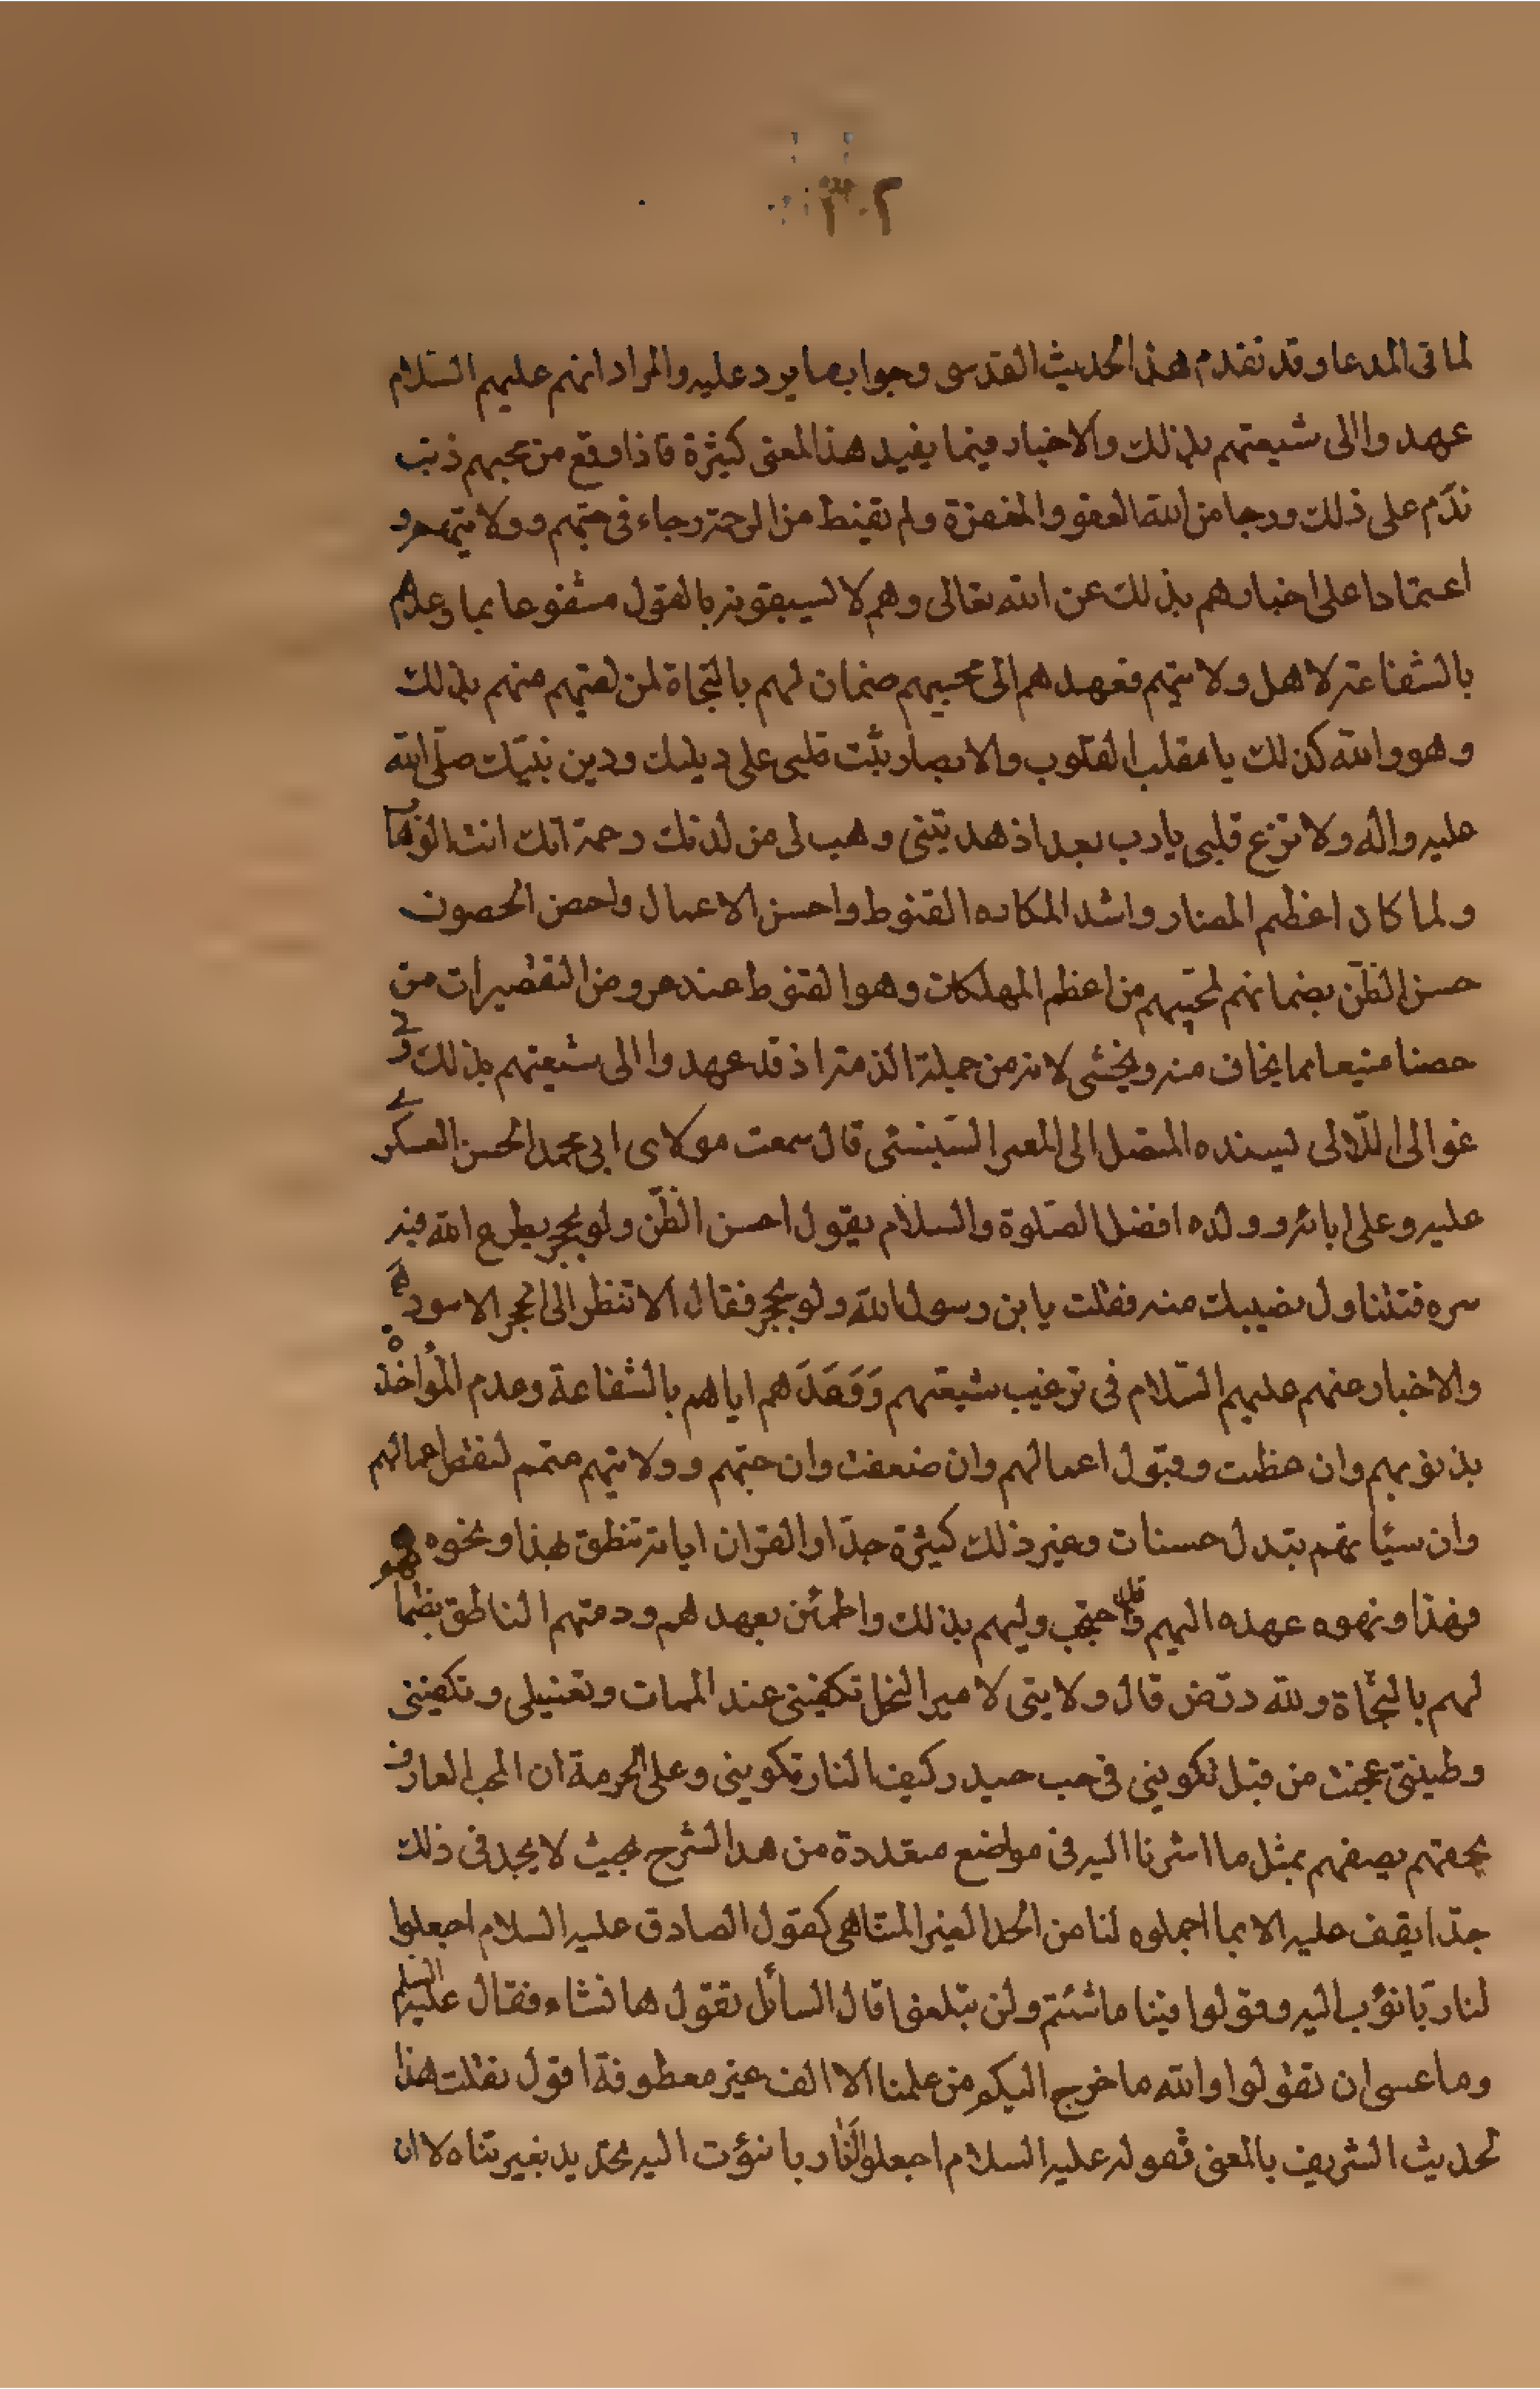 لما في المدعا وقد تقدم هذا الحديث القدسي وجواب ما يرد عليه والمراد انهم عليهم السّلام
عهدوا الى شيعتهم بذلك والاخبار فيما يفيد هذا المعنى كثيرة فاذا وقع من محبهم ذنب
ندّم على ذلك ورجا من الله العفو والمغفرة ولم يقنط من الرحمة رجاء في حبّهم وولايتهم و
اعتمادا على اخبارهم بذلك عن الله تعالى وهم لا يسبقونه بالقول مشفوعا بما وعدهم
بالشفاعة لاهل ولايتهم فعهدهم الى محبيهم ضمان لهم بالنجاة لمن لقيهم منهم بذلك
وهو والله كذلك يا مقلب القلوب والابصار ثبّت قلبي على دينك ودين نبيّك صلّى الله
عليه واله ولا تزغ قلبي يا رب بعد اذ هديتني وهب لي من لدنك رحمة انك انت الوهاب
ولما كان اعظم المضار واشد المكاره القنوط واحسن الاعمال واحصن الحصون
حسن الظنّ بضمانهم لمحبّيهم من اعظم المهلكات وهو القنوط عند عروض التقصيرات من
حصنا منيعا مما يخاف منه ويخشى لانه من جملة الذمة اذ قد عهدوا الى شيعتهم بذلك وفي
غوالي اللّالي بسنده المتصل الى المعمر السّنبسي قال سمعت مولاي ابي محمد الحسن العسكري
عليه وعلى ابائه وولده افضل الصّلوة والسلام يقول احسن الظّن ولو بحجر يطرح الله فيه
سره فتتناول نصيبك منه فقلت يا بن رسول الله ولو بحجر فقال الا تنظر الى الحجر الاسود
والاخبار عنهم عليهم السّلام في ترغيب شيعتهم وَوَعَدَهم اياهم بالشفاعة وعدم المؤاخذة
بذنوبهم وان عظمت وقبول اعمالهم وان ضعفت وان حبّهم وولايتهم متمم لنقص اعمالهم
وان سيّاتهم تبدل حسنات وغير ذلك كثيرة جدّا والقران اياته تنطق بهذا ونحوه فهو
فهذا ونحوه عهده اليهم وليهم بذلك واطمئن بعهدهم وذمتهم الناطق
لهم بالنجاة ولله در من قال ولايتي لامير النحل تكفيني عند الممات وتغسيلي وتكفيني
وطينتي عجنت من قبل تكويني في حب حيدر كيف النار تكويني وعلى الحرمة ان المحب العارف
بحقهم يصفهم بمثل ما اشرنا اليه في مواضع متعددة من هذا الشرح بحيث لا يجد في ذلك
حدّا يقف عليه الا بما اجملوه لنا من الحد الغير المتناهي كقول الصادق عليه السلام اجعلوا
لنا ربّا نؤب اليه وقولوا فينا ما شئتم ولن تبلغوا قال السائل نقول ما نشاء فقال عليه السلم
وما عسى ان تقولوا والله ما خرج اليكم من علمنا الا الف غير معطوفة اقول نقلت هذا
لحديث الشريف بالمعنى فقوله عليه السلام اجعلوا لنا ربا نؤب اليه تحديد بغير تناه لان